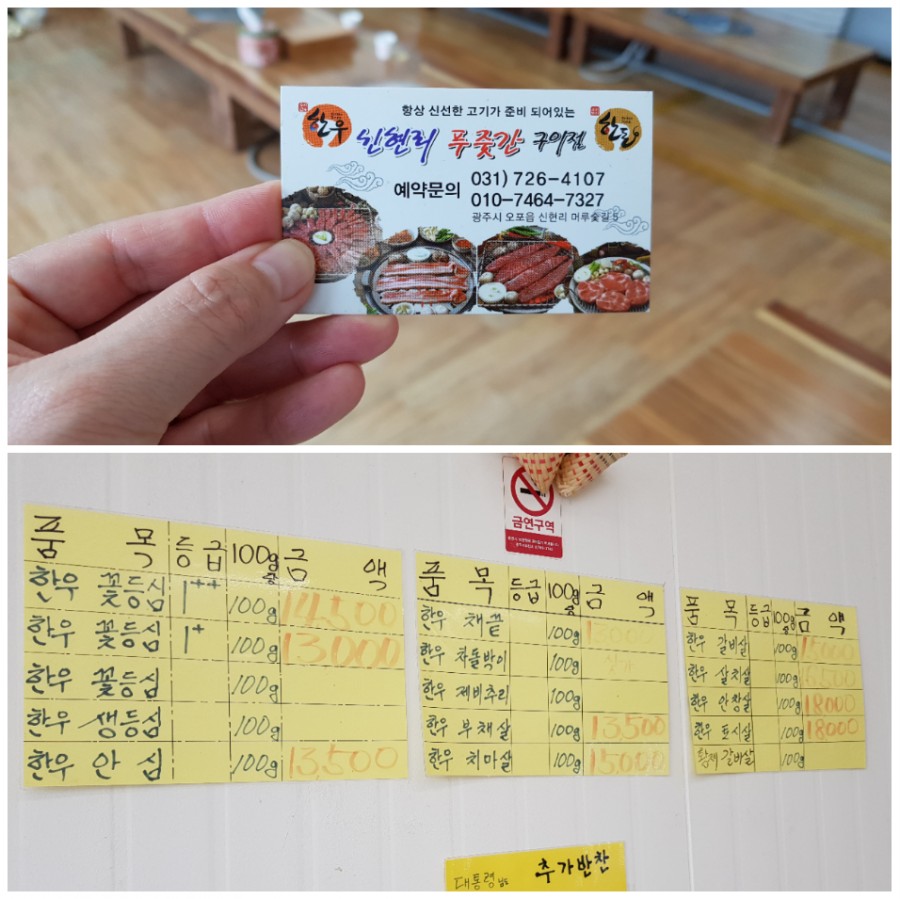 항상 신선한 고기가 준비 되어있는
한우 신현리 푸줏간 구의점 한돈
예약문의 031) 726-4107
010-7464-7327
광주시 오포읍 신현리 머루숯길 5
금연구역
품 목 등급 100g당 금 액
한우 꽃등심 1++ 100g
한우 꽃등심 1+ 100g 13,000
한우 꽃등심 100g
한우 생등심 100g
한우 안심 100g 13,500
품 목 등급 100g당 금 액
한우 채끝 100g 13,000
한우 차돌박이 100g
한우 제비추리 100g
한우 부채살 100g 13,500
한우 치마살 100g 15,000
품 목 등급 100g당 금 액
한우 갈비살 100g
한우 살치살 100g
한우 안창살 100g 18000
한우 토시살 100g 18000
갈비살 100g
대통령 추가반찬